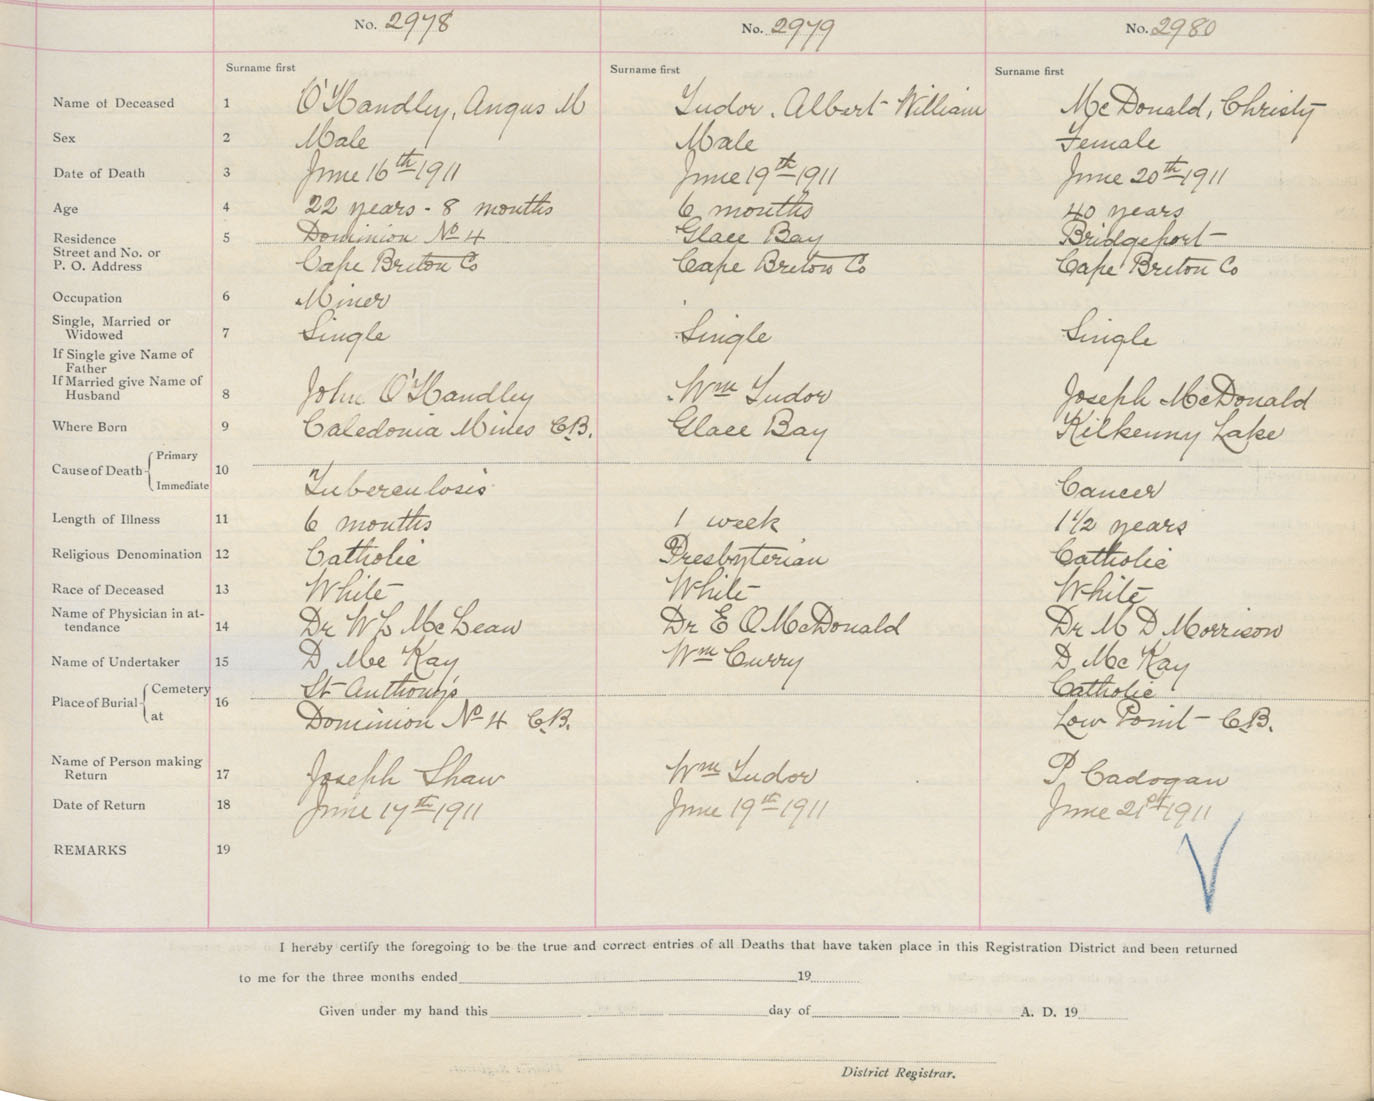 No. 2978 No. 2979 No. 2980
Surname first Surname first Surname first
Name of Deceased 1 O'Handley, Angus M Tudor, Albert William McDonald, Christy
Sex 2 Male Male Female
Date of Death 3 June 16th 1911 June 19th 1911 June 20th 1911
Age 4 22 years - 8 months 6 months 40 years
Residence 5 Dominion No 4 Glace Bay Bridgeport
Street and No. or
P. O. Address Cape Breton Co Cape Breton Co Cape Breton Co
Occupation 6 Miner
Single, Married or
Widowed 7 Single Single Single
If Single give Name of
Father
If Married give Name of
Husband 8 John O'Handley Wm Tudor Joseph McDonald
Where Born 9 Caledonia Mines C.B. Glace Bay Kilkenny Lake
Primary
Cause of Death 10
Immediate Tuberculosis Cancer
Length of Illness 11 6 months 1 week 1 1/2 years
Religious Denomination 12 Catholic Presbyterian Catholic
Race of Deceased 13 White White White
Name of Physician in at-
tendance 14 Dr W L McLean Dr E O McDonald Dr M D Morrison
Name of Undertaker 15 D McKay Wm Curry D McKay
Cemetery St Anthony's Catholic
Place of Burial 16
at Dominion No 4 C.B. Low Point - C.B.
Name of Person making
Return 17 Joseph Shaw Wm Tudor P. Cadogan
Date of Return 18 June 17th 1911 June 19th 1911 June 21st 1911
REMARKS 19
I hereby certify the foregoing to be the true and correct entries of all Deaths that have taken place in this Registration District and been returned
to me for the three months ended 19
Given under my hand this day of A. D. 19
District Registrar.